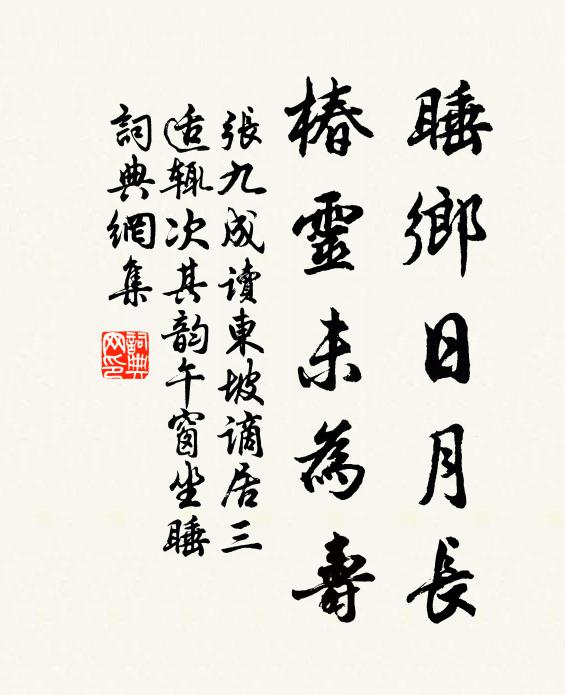 睡鄉日月長
椿靈未為壽
張九成讀東坡謫居三
适辄次其韵午窗坐睡
詞典網集
詞典网印